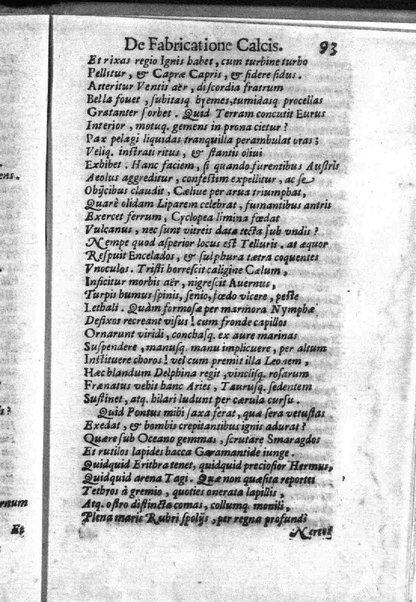 De Fabricatione Calcis. 93
Et rixas regio Ignis habet, cum turbine turbo
Pellitur, & Capræ Capris, & sidere sidus.
Atteritur Ventis aër, discordia fratrum
Bella fouet, subitasq. hyemes, tumidasq. procellas
Gratanter sorbet. Quid Terram concutit Eurus
Interior, motuq. gemens in prona cietur?
Pax pelagi liquidas tranquilla perambulat vras;
Veliq. instrati ritus, & stantis oliui
Exhibet. Hanc faciem, si quando furentibus Austris
Aeolus aggreditur, confestim expellitur, ac se
Obijcibus claudit, Cæliue per arua triumphat,
Quarè olidam Liparem celebrat, fumantibus antris
Exercet ferrum, Cyclopea limina fœdat
Vulcanus, nec sunt vitreis data tecta sub vndis?
Nempe quod asperior locus est Telluris. at æquor
Respuit Encelados, & sulphura tætra coquentes
Vnoculos. Tristi horrescit caligine Cælum,
Inficitur morbis aër, nigrescit Auernus,
Turpis humus spinis, senio, fœdo vicere, peste
Lethali. Quàm formosæ per marmora Nymphæ
Defixos recreant visus! cum fronde capillos
Ornarunt viridi, conchasq. ex aure marinas
Suspendere, manusq. manu implicuere, per altum
Instituere choros! vel cum premit illa Leonem,
Hæc blandum Delphina regit, vinclisq. rosarum
Frænatus vehit hanc Aries, Taurusq. sedentem
Sustinet, atq. hilari ludunt per cærula cursu.
Quid Pontus mihi saxa ferat, quæ sera vetustas
Exedat, & bombis crepitantibus ignis adurat?
Quære sub Oceano gemmas, scrutare Smaragdos
Et rutilos lapides bacca Garamantide iunge.
Quidquid Erithra tenet, quidquid preciosior Hermus,
Quidquid arena Tagi. Quæ non quæsita reportes
Tethyos à gremio, quoties onerata lapillis,
Atq. ostro distincta comas, collumq. monili,
Plena maris Rubri spolijs, per regna profundi
Nereos
ens.
s?
ernum
Et